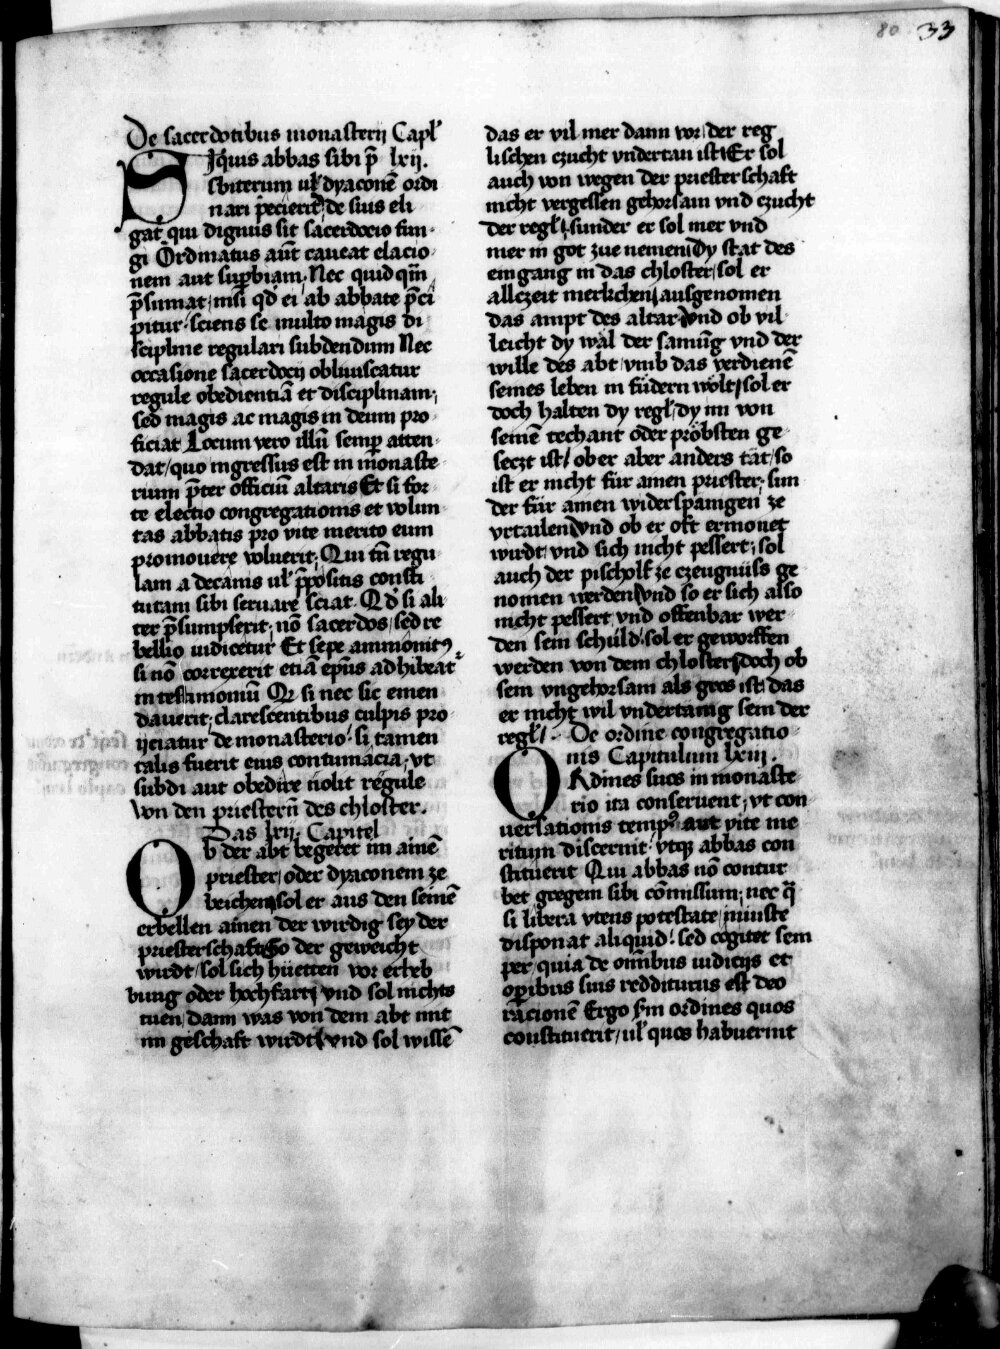 80 33
De sacerdotibus monasterij Capl'
SIquis abbas sibi p̄ lxij.
sbiterum ul' dyaconē ordi
nari pecierit de suis eli
gat qui dignus sit sacerdocio fun
gi Ordinatus aūt caueat elacio
nem aut suꝑbiam. Nec quidqm̄
p̄sumat / nisi qd̄ ei ab abbate p̄ci
pitur / sciens se multo magis di
scipline regulari subdendum Nec
occasione sacerdocij obliuiscatur
regule obedienciā et disciplinam;
sed magis ac magis in deum pro
ficiat Locum vero illū semꝑ atten
dat / quo ingressus est in monaste
rium p̄ter officiū altaris Et si for
te electio congregationis et volun
tas abbatis pro vite merito eum
promouere voluerit; Qui tn̄ regu
lam a decanis ul' p̄positis consti
tutam sibi seruare sciat. Qd̄ si ali
ter p̄sumpserit; nō sacerdos / sed re
bellio iudicetur Et sepe ammonitꝰ
si nō correxerit etiā ep̄us adhibeat
in testimoniū Qr̄ si nec sic emen
dauerit; clarescentibus culpis pro
ijciatur de monasterio. si tamen
talis fuerit eius contumacia, vt
subdi aut obedire nolit regule
Von den priesterñ des chloster.
Das lxij. Capitel
Ob der abt begeret im ainē
priester / oder dyaconem ze
beichen sol er aus den seinē
erbellen ainen der wirdig sey der
priesterschaft So der geweicht
wirdt / sol sich hüetten vor erheb
bung oder hochfartj vnd sol nichts
tuen dann was von dem abt mit
im geschaft wirdt / vnd sol wissē
das er vil mer dann vor der reg
lischen czucht vndertan ist Er sol
auch von wegen der priesterschaft
nicht vergessen gehorsam vnd czucht
der regl / sunder er sol mer vnd
mer in got zue nemen Dy stat des
eingang in das chloster / sol er
allczeit merkchen / ausgenomen
das ampt des altar Vnd ob vil
leicht dy wal der samūg vnd der
wille des abt / vmb das verdienē
seines leben in füdern wolt / sol er
doch halten dy regl / dy im von
seinē techant oder pröbsten ge
seczt ist / ob er aber anders tät / so
ist er nicht für ainen priester; sun
der für ainen widerspänigen ze
vrtailen Vnd ob er oft ermonet
wirdt / vnd sich nicht pessert; sol
auch der pischolf ze czeugnüss ge
nomen werden Vnd so er sich also
nicht pessert / vnd offenbar wer
den sein schuld / sol er geworffen
werden von dem chloster / doch ob
sein vngehorsam als gros ist / das
er nicht wil vndertanig sein der
regl / De ordine congregatio
nis Capitulum lxiij.
ORdines suos in monaste
rio ita conseruent; vt con
uersationis tempꝰ aut vite me
ritum discernit / vtqꝫ abbas con
stituerit Qui abbas nō contur
bet gregem sibi cōmissum; nec q̄
si libera vtens potestate / iniuste
disponat aliquid / sed cogitet sem
per / quia de om̄ibus iudicijs et
oꝑibus suis redditurus est deo
rācionē Ergo scd̄m ordines quos
constituerit / ul' quos habuerint